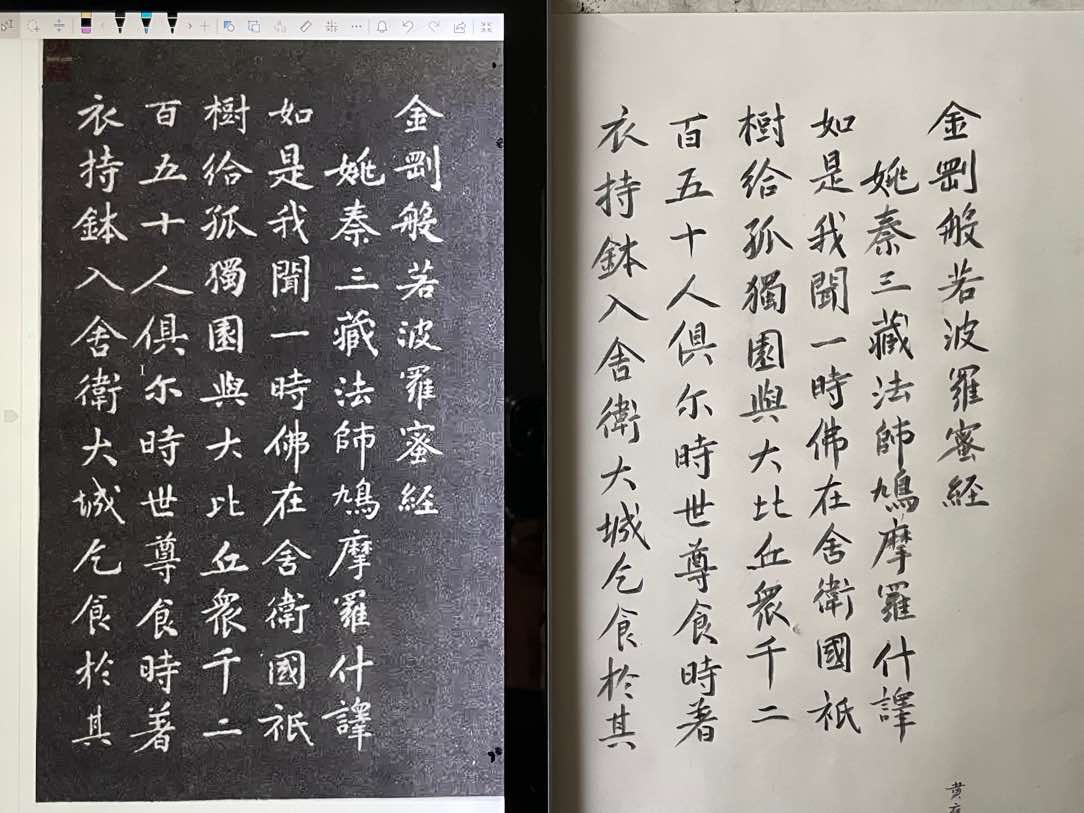 金剛般若波羅蜜経
姚秦三藏法師鳩摩羅什譯
如是我聞一時佛在舍衛國祇
樹給孤獨園與大比丘衆千二
百五十人俱尓時世尊食時著
衣持鉢入舍衛大城乞食於其
金剛般若波羅蜜経
姚秦三藏法師鳩摩羅什譯
如是我聞一時佛在舍衛國祇
樹給孤獨園與大比丘衆千二
百五十人俱尓時世尊食時著
衣持鉢入舍衛大城乞食於其
黄